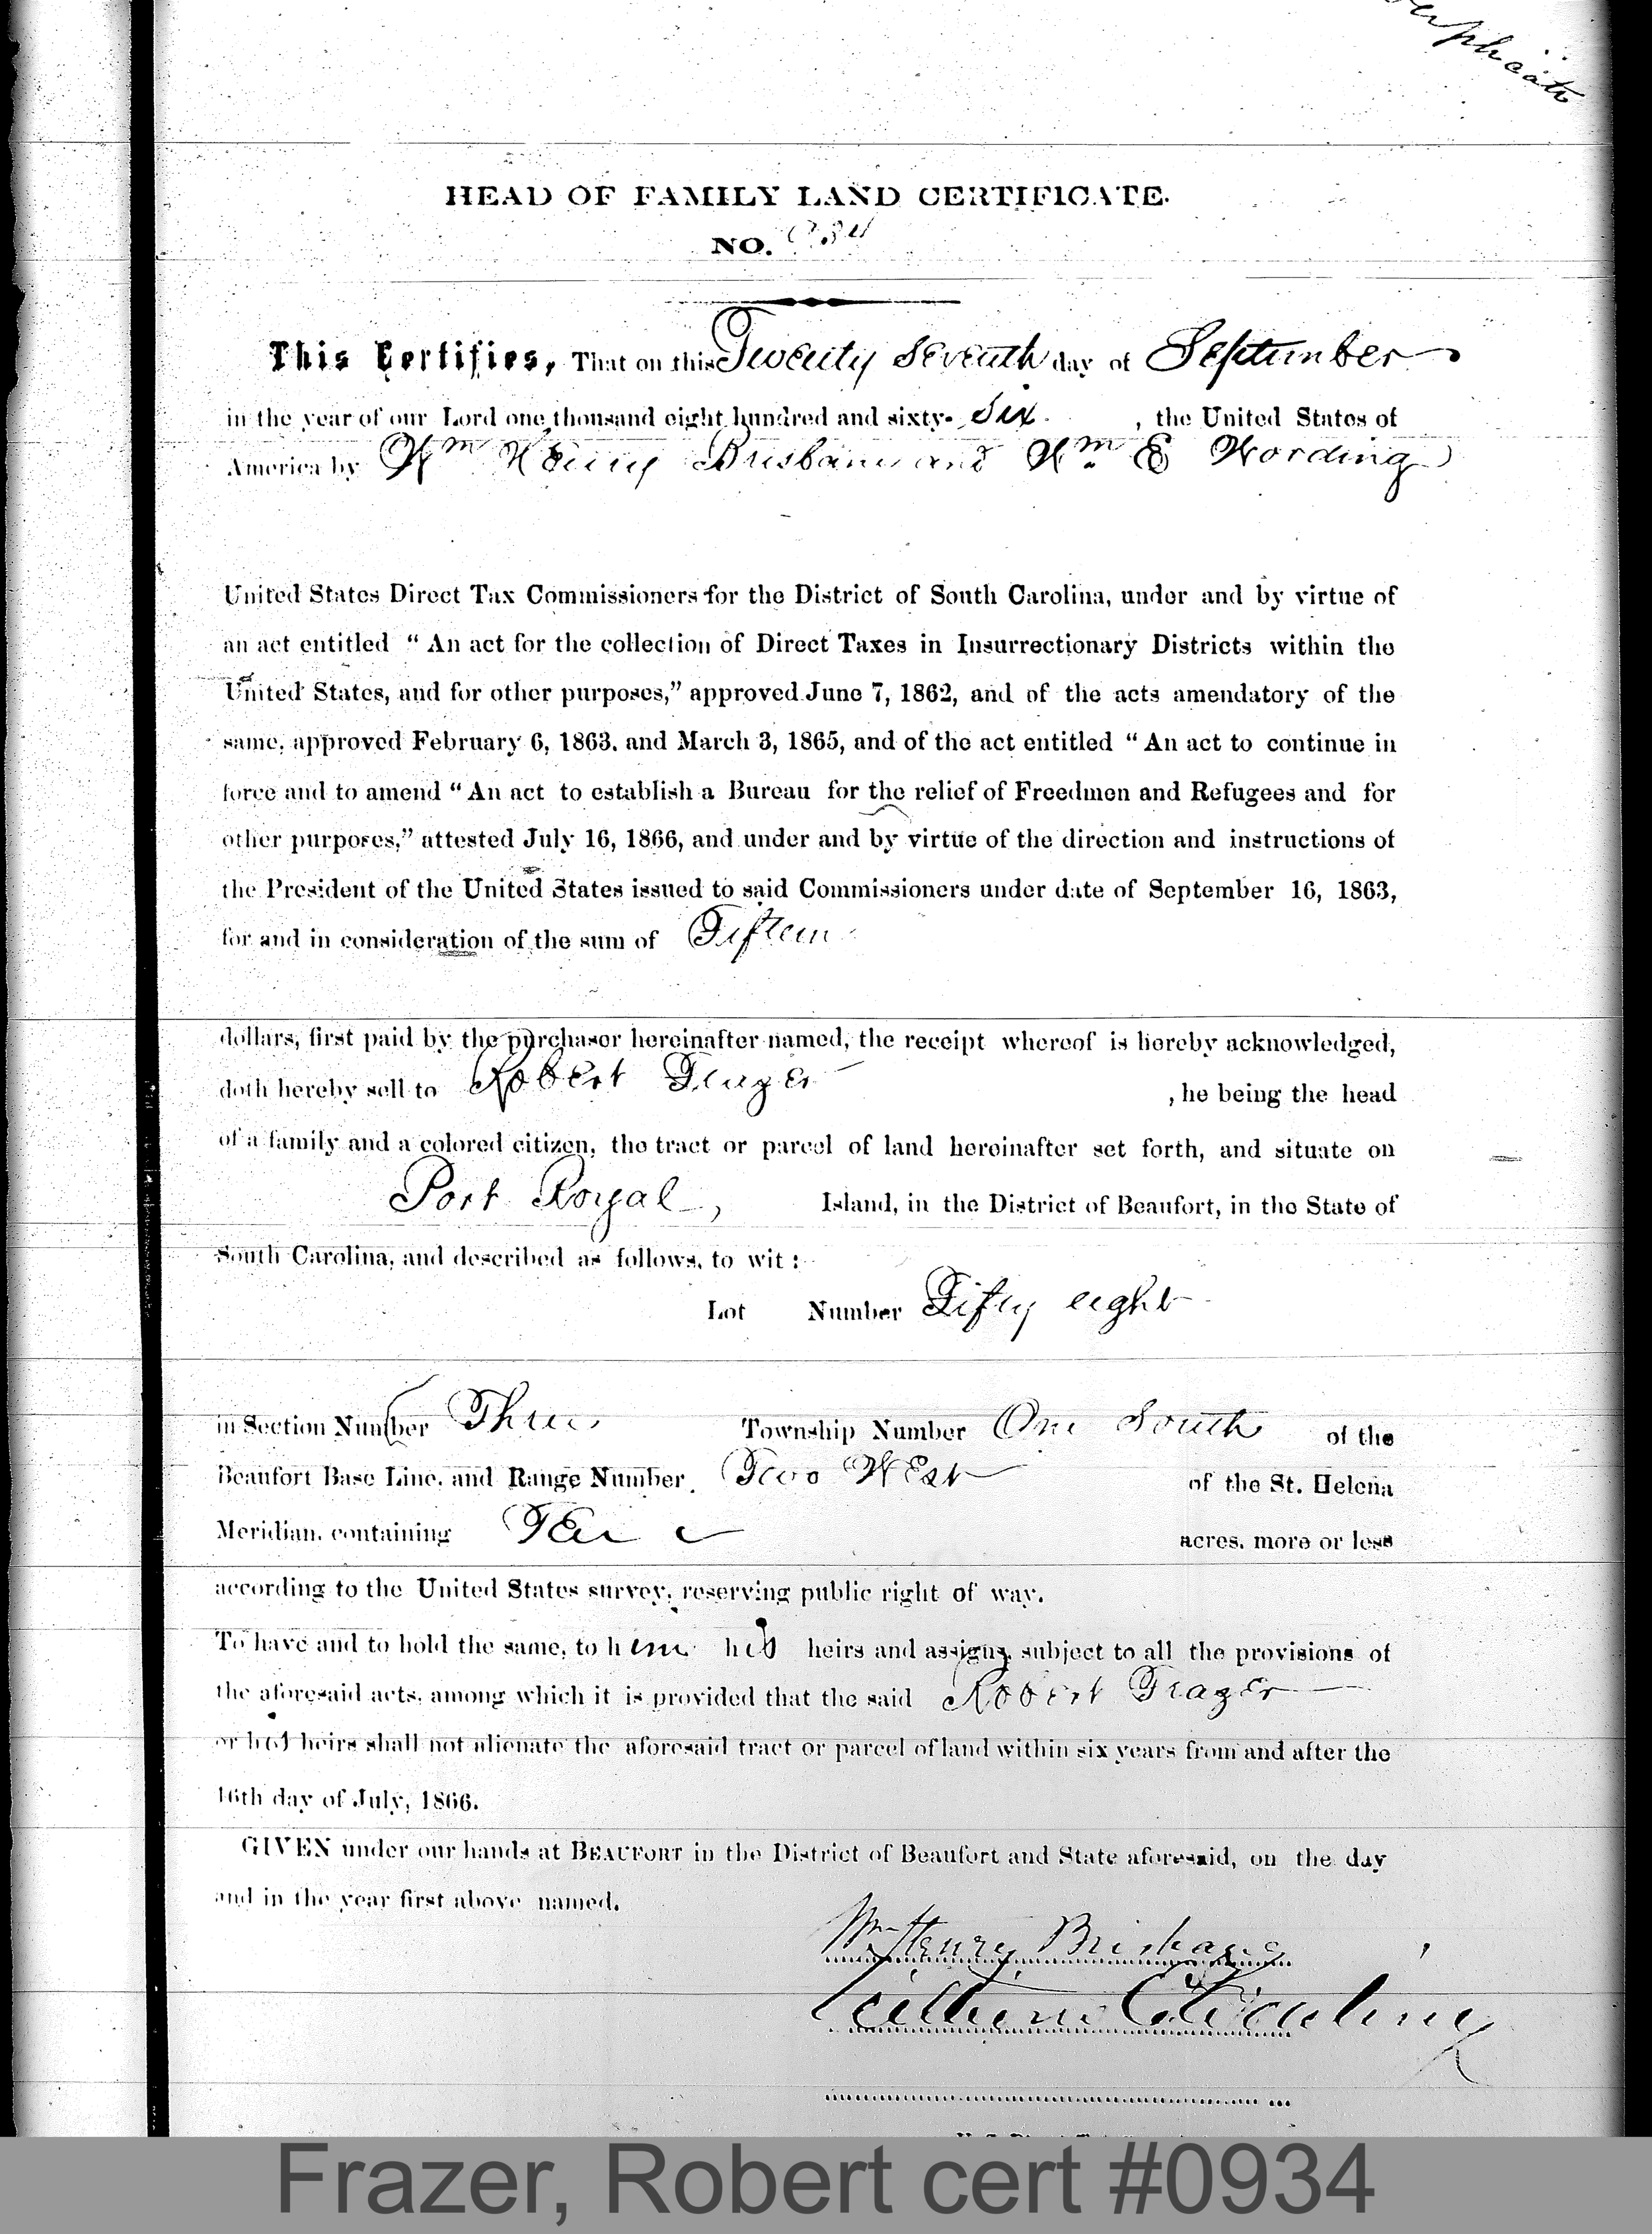 HEAD OF FAMILY LAND CERTIFICATE.
NO. 934
This Certifies, That on this Twenty Seventh day of September
in the year of our Lord one thousand eight hundred and sixty- Six , the United States of
America by Wm Henry Brisbane and Wm. E Wording
United States Direct Tax Commissioners for the District of South Carolina, under and by virtue of
an act entitled “ An act for the collection of Direct Taxes in Insurrectionary Districts within the
United States, and for other purposes,” approved June 7, 1862, and of the acts amendatory of the
same, approved February 6, 1863, and March 3, 1865, and of the act entitled “ An act to continue in
force and to amend “ An act to establish a Bureau for the relief of Freedmen and Refugees and for
other purposes,” attested July 16, 1866, and under and by virtue of the direction and instructions of
the President of the United States issued to said Commissioners under date of September 16, 1863,
for and in consideration of the sum of Fifteen
dollars, first paid by the purchaser hereinafter named, the receipt whereof is hereby acknowledged,
doth hereby sell to Robert Frazer , he being the head
of a family and a colored citizen, the tract or parcel of land hereinafter set forth, and situate on
Port Royal, Island, in the District of Beaufort, in the State of
South Carolina, and described as follows, to wit :
Lot Number Fifty eight
in Section Number Three Township Number One South of the
Beaufort Base Line, and Range Number Two West of the St. Helena
Meridian, containing Ten acres, more or less
according to the United States survey, reserving public right of way.
To have and to hold the same, to him his heirs and assigns, subject to all the provisions of
the aforesaid acts, among which it is provided that the said Robert Frazer
or his heirs shall not alienate the aforesaid tract or parcel of land within six years from and after the
16th day of July, 1866.
GIVEN under our hands at BEAUFORT in the District of Beaufort and State aforesaid, on the day
and in the year first above named.
Wm Henry Brisbane
William E Wording
Frazer, Robert cert #0934